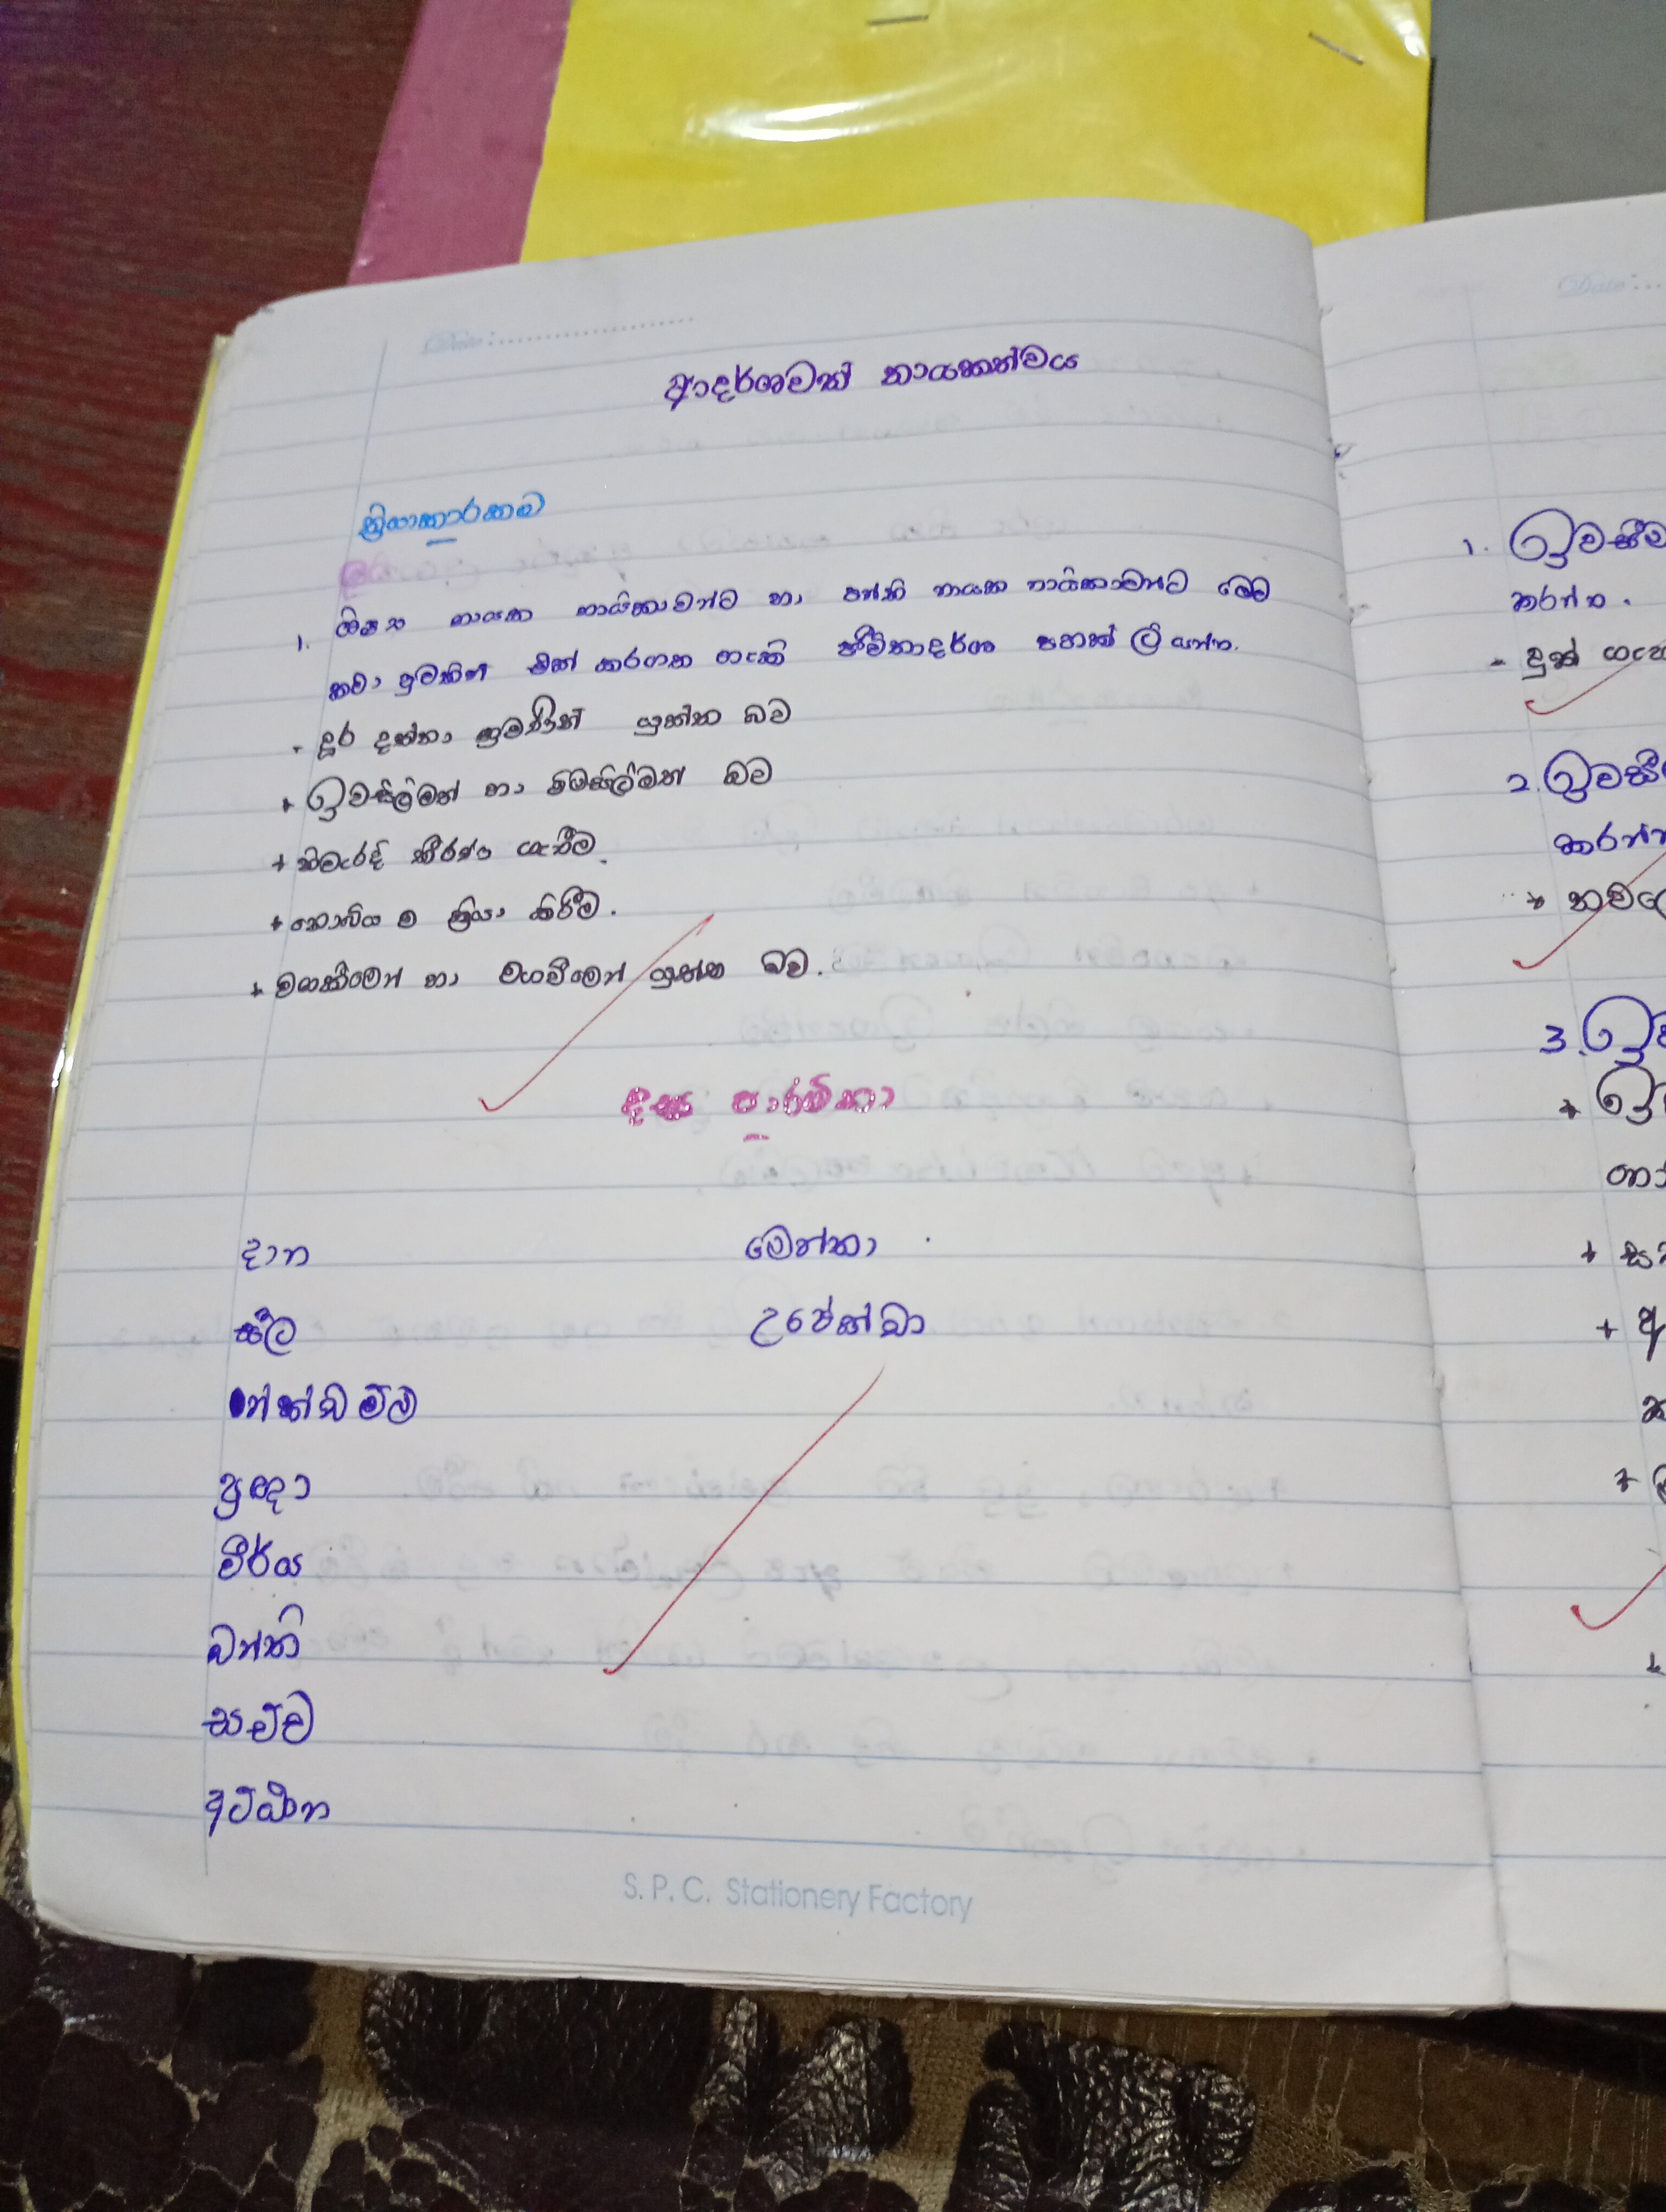 Date:........................
ආදර්ශමත් නායකත්වය
ක්‍රියාකාරකම
1. ශිෂ්‍ය නායක නායිකාවන්ට හා පන්ති නායක නායිකාවන්ට මෙම
කථා පුවතින් එක් කරගත හැකි ජීවිතාදර්ශ පහක් ලියන්න.
- දූර දක්නා නුවණින් යුක්ත බව
+ ඉවසිලිමත් හා විමසිලිමත් බව
+ නිවැරදි තීරණ ගැනීම.
+ නොබිය ව ක්‍රියා කිරීම.
+ වගකීමෙන් හා වගවීමෙන් යුක්ත බව.
දස පාරමිතා
දාන මෙත්තා
සීල උපේක්ඛා
නෙක්ඛම්ම
ප්‍රඥා
වීර්ය
ඛන්ති
සච්ච
අධිඨාන
S. P. C. Stationery Factory
Date:...
1. ඉවසීම
කරන්න.
2. ඉවසී
කරන්න
3.